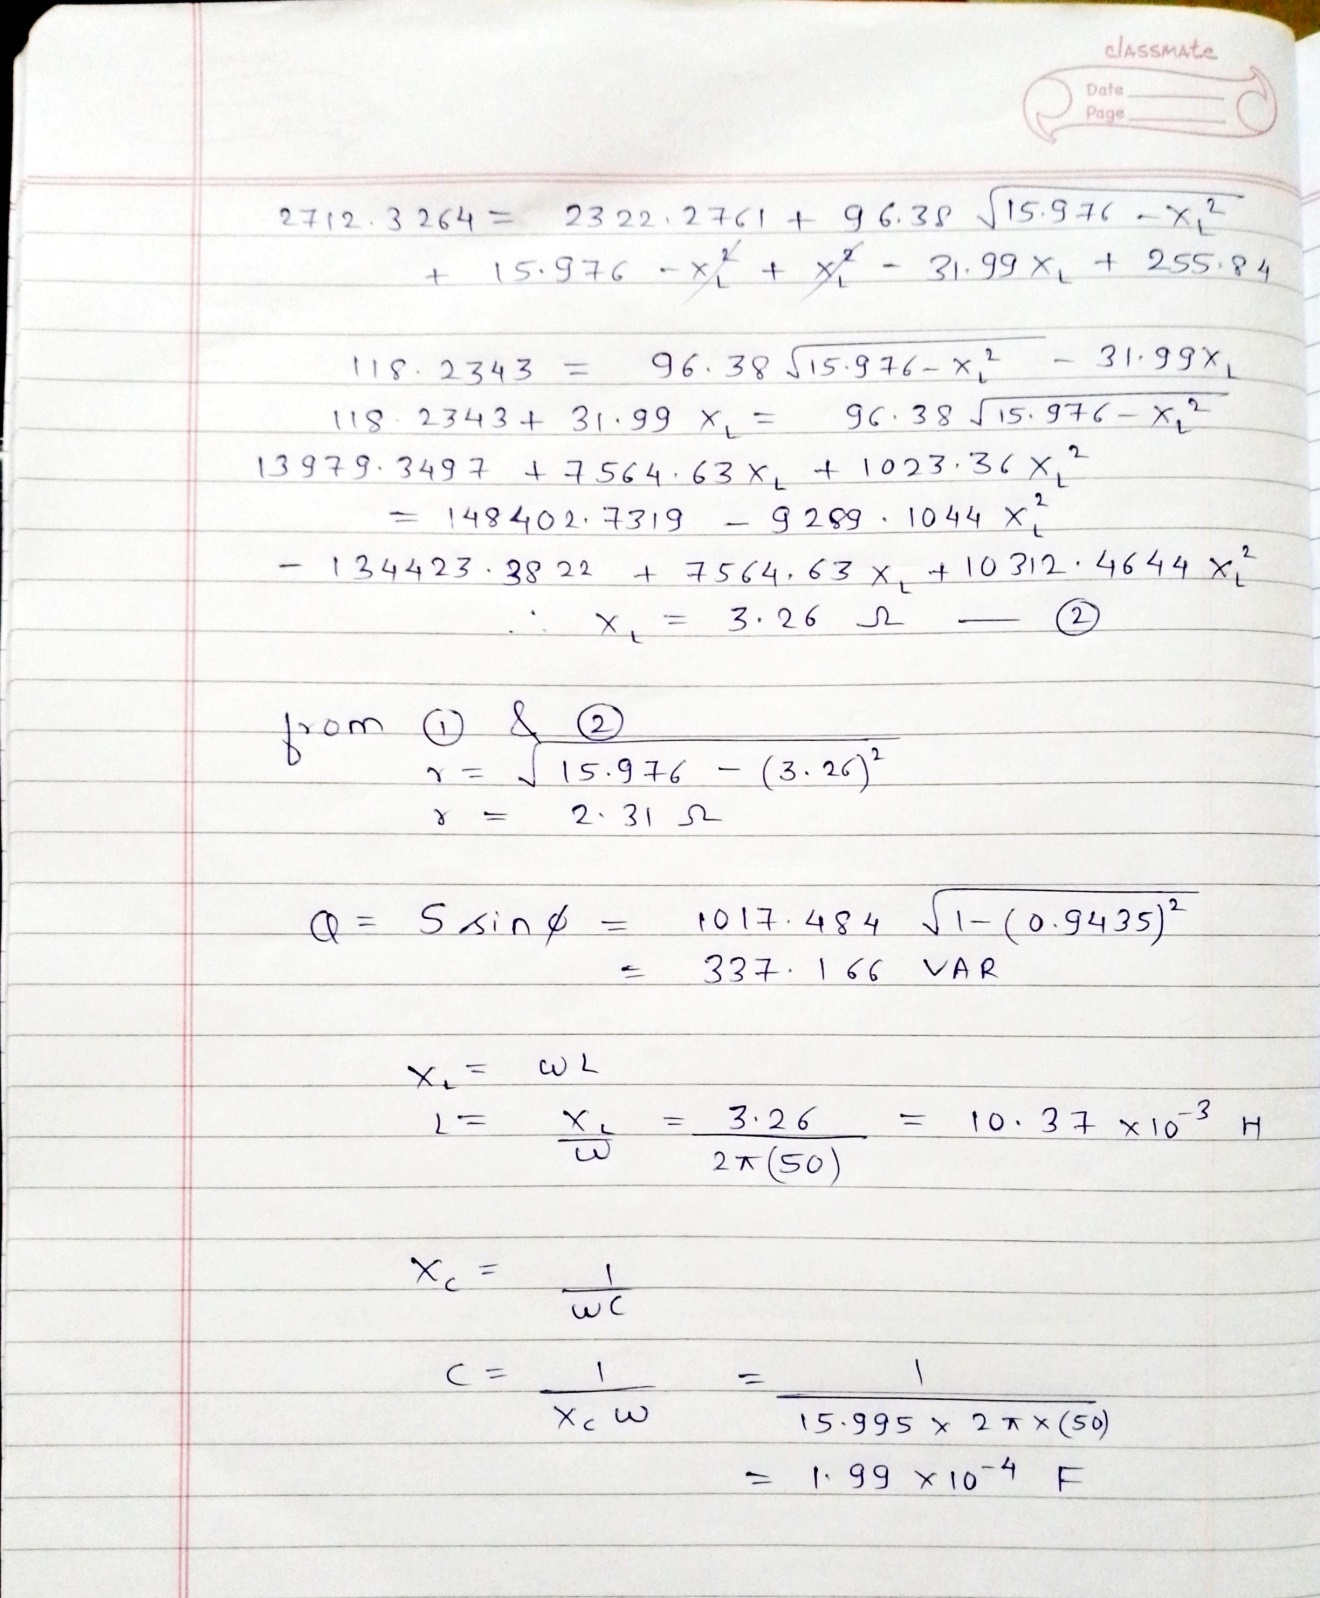 classmate
Date
Page
2712.3264 = 2322.2761 + 96.38 √(15.976 - X_L²)
+ 15.976 - X_L² + X_L² - 31.99 X_L + 255.84
118.2343 = 96.38 √(15.976 - X_L²) - 31.99 X_L
118.2343 + 31.99 X_L = 96.38 √(15.976 - X_L²)
13979.3497 + 7564.63 X_L + 1023.36 X_L²
= 148402.7319 - 9289.1044 X_L²
- 134423.3822 + 7564.63 X_L + 10312.4644 X_L²
∴ X_L = 3.26 Ω — ②
from ① & ②
r = √(15.976 - (3.26)²)
r = 2.31 Ω
Q = S sin ϕ = 1017.484 √(1-(0.9435)²)
= 337.166 VAR
X_L = ωL
L = X_L/ω = 3.26/2π(50) = 10.37 × 10⁻³ H
X_C = 1/ωC
C = 1/X_C ω = 1/15.995 × 2π × (50)
= 1.99 × 10⁻⁴ F